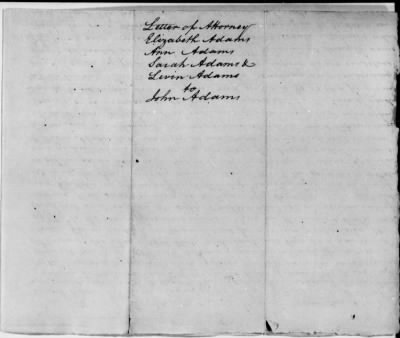 Letter of Attorney
Elizabeth Adams
Ann Adams
Sarah Adams &
Levin Adams
to
John Adams